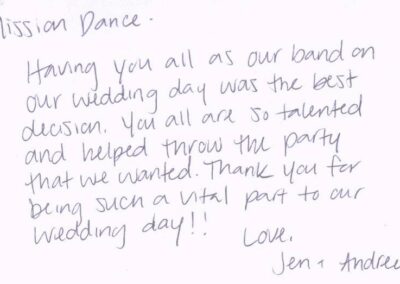 Mission Dance.
Having you all as our band on
our wedding day was the best
decision. You all are so talented
and helped throw the party
that we wanted. Thank you for
being such a vital part to our
wedding day!!
Love,
Jen + Andrew